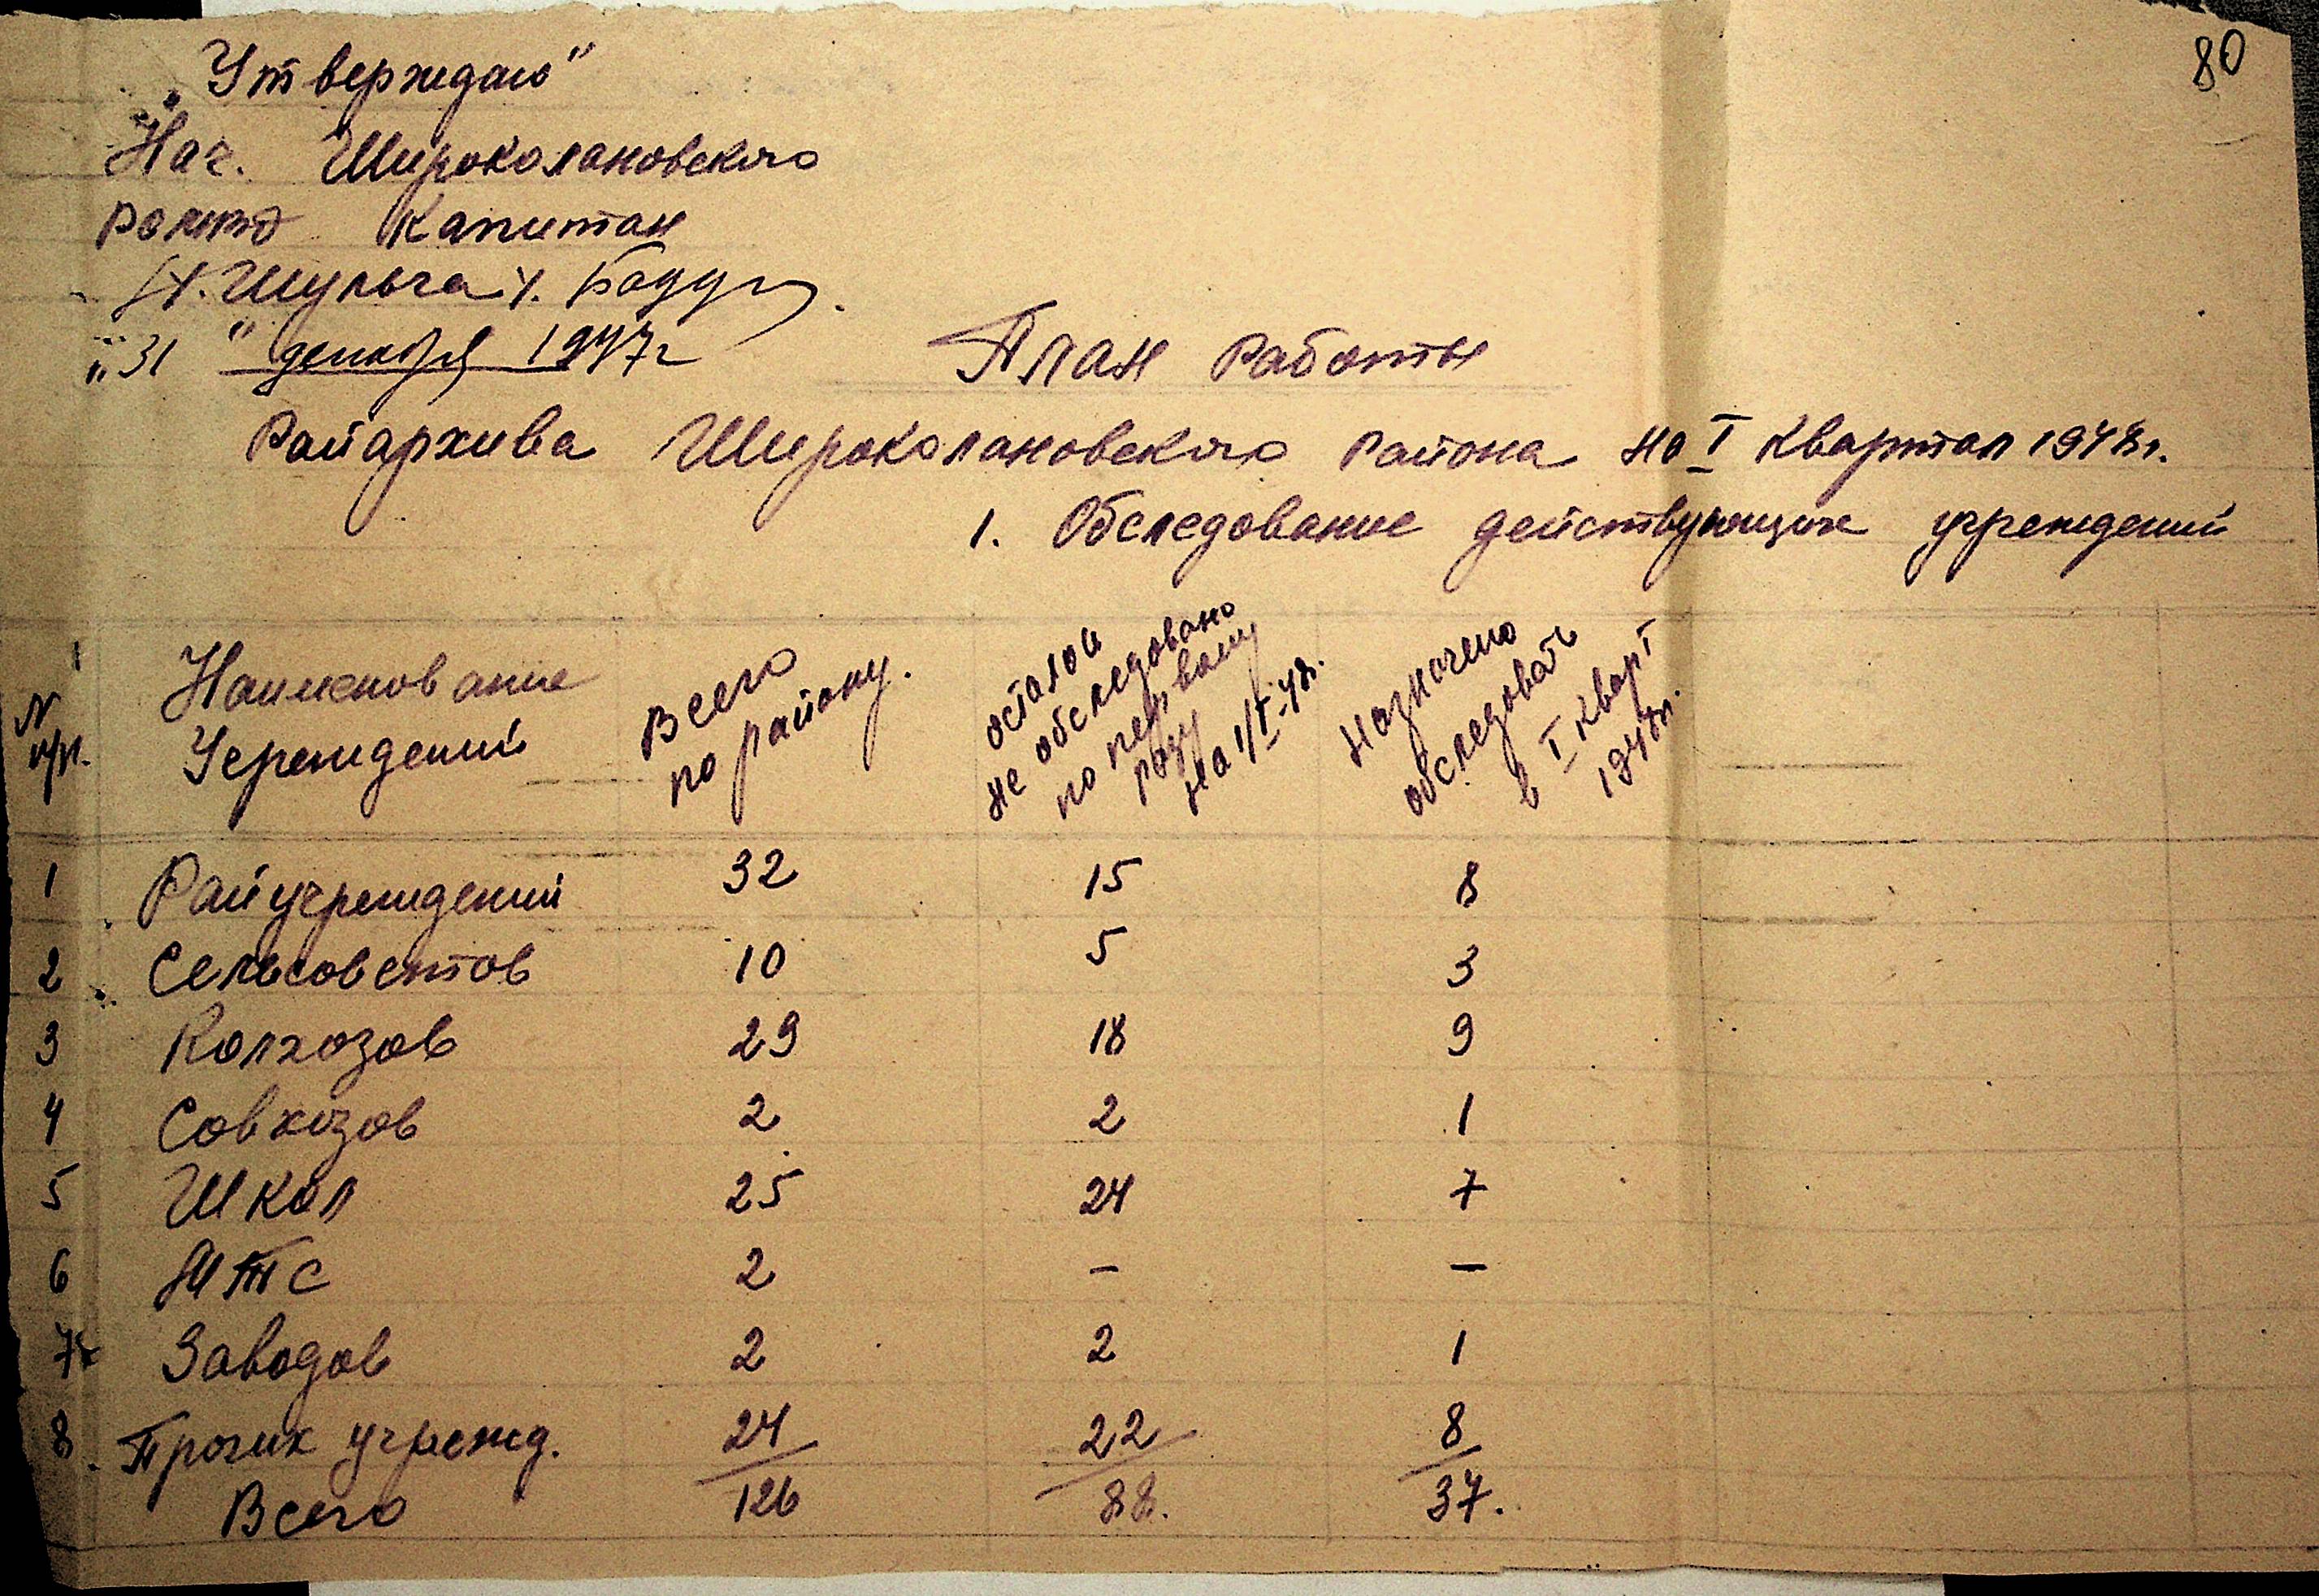 80
„Утверждаю"
Нач. Широколановского
РОМВД Капитан
/Н. Шульга/.
„31" декабря 1947г
План работы
Райархива Широколановского района на I квартал 1948г.
1. Обследование действующих учреждений
N п/п. Наименование Учреждений Всего по району. осталось не обследовано по первому разу на 1/I-48. Назначено обследовать в I кварт 1948г.
1 Райучреждений 32 15 8
2 Сельсоветов 10 5 3
3 Колхозов 29 18 9
4 Совхозов 2 2 1
5 Школ 25 24 7
6 МТС 2 – –
7 Заводов 2 2 1
8. Прочих учрежд. 24 22 8
Всего 126 88. 37.